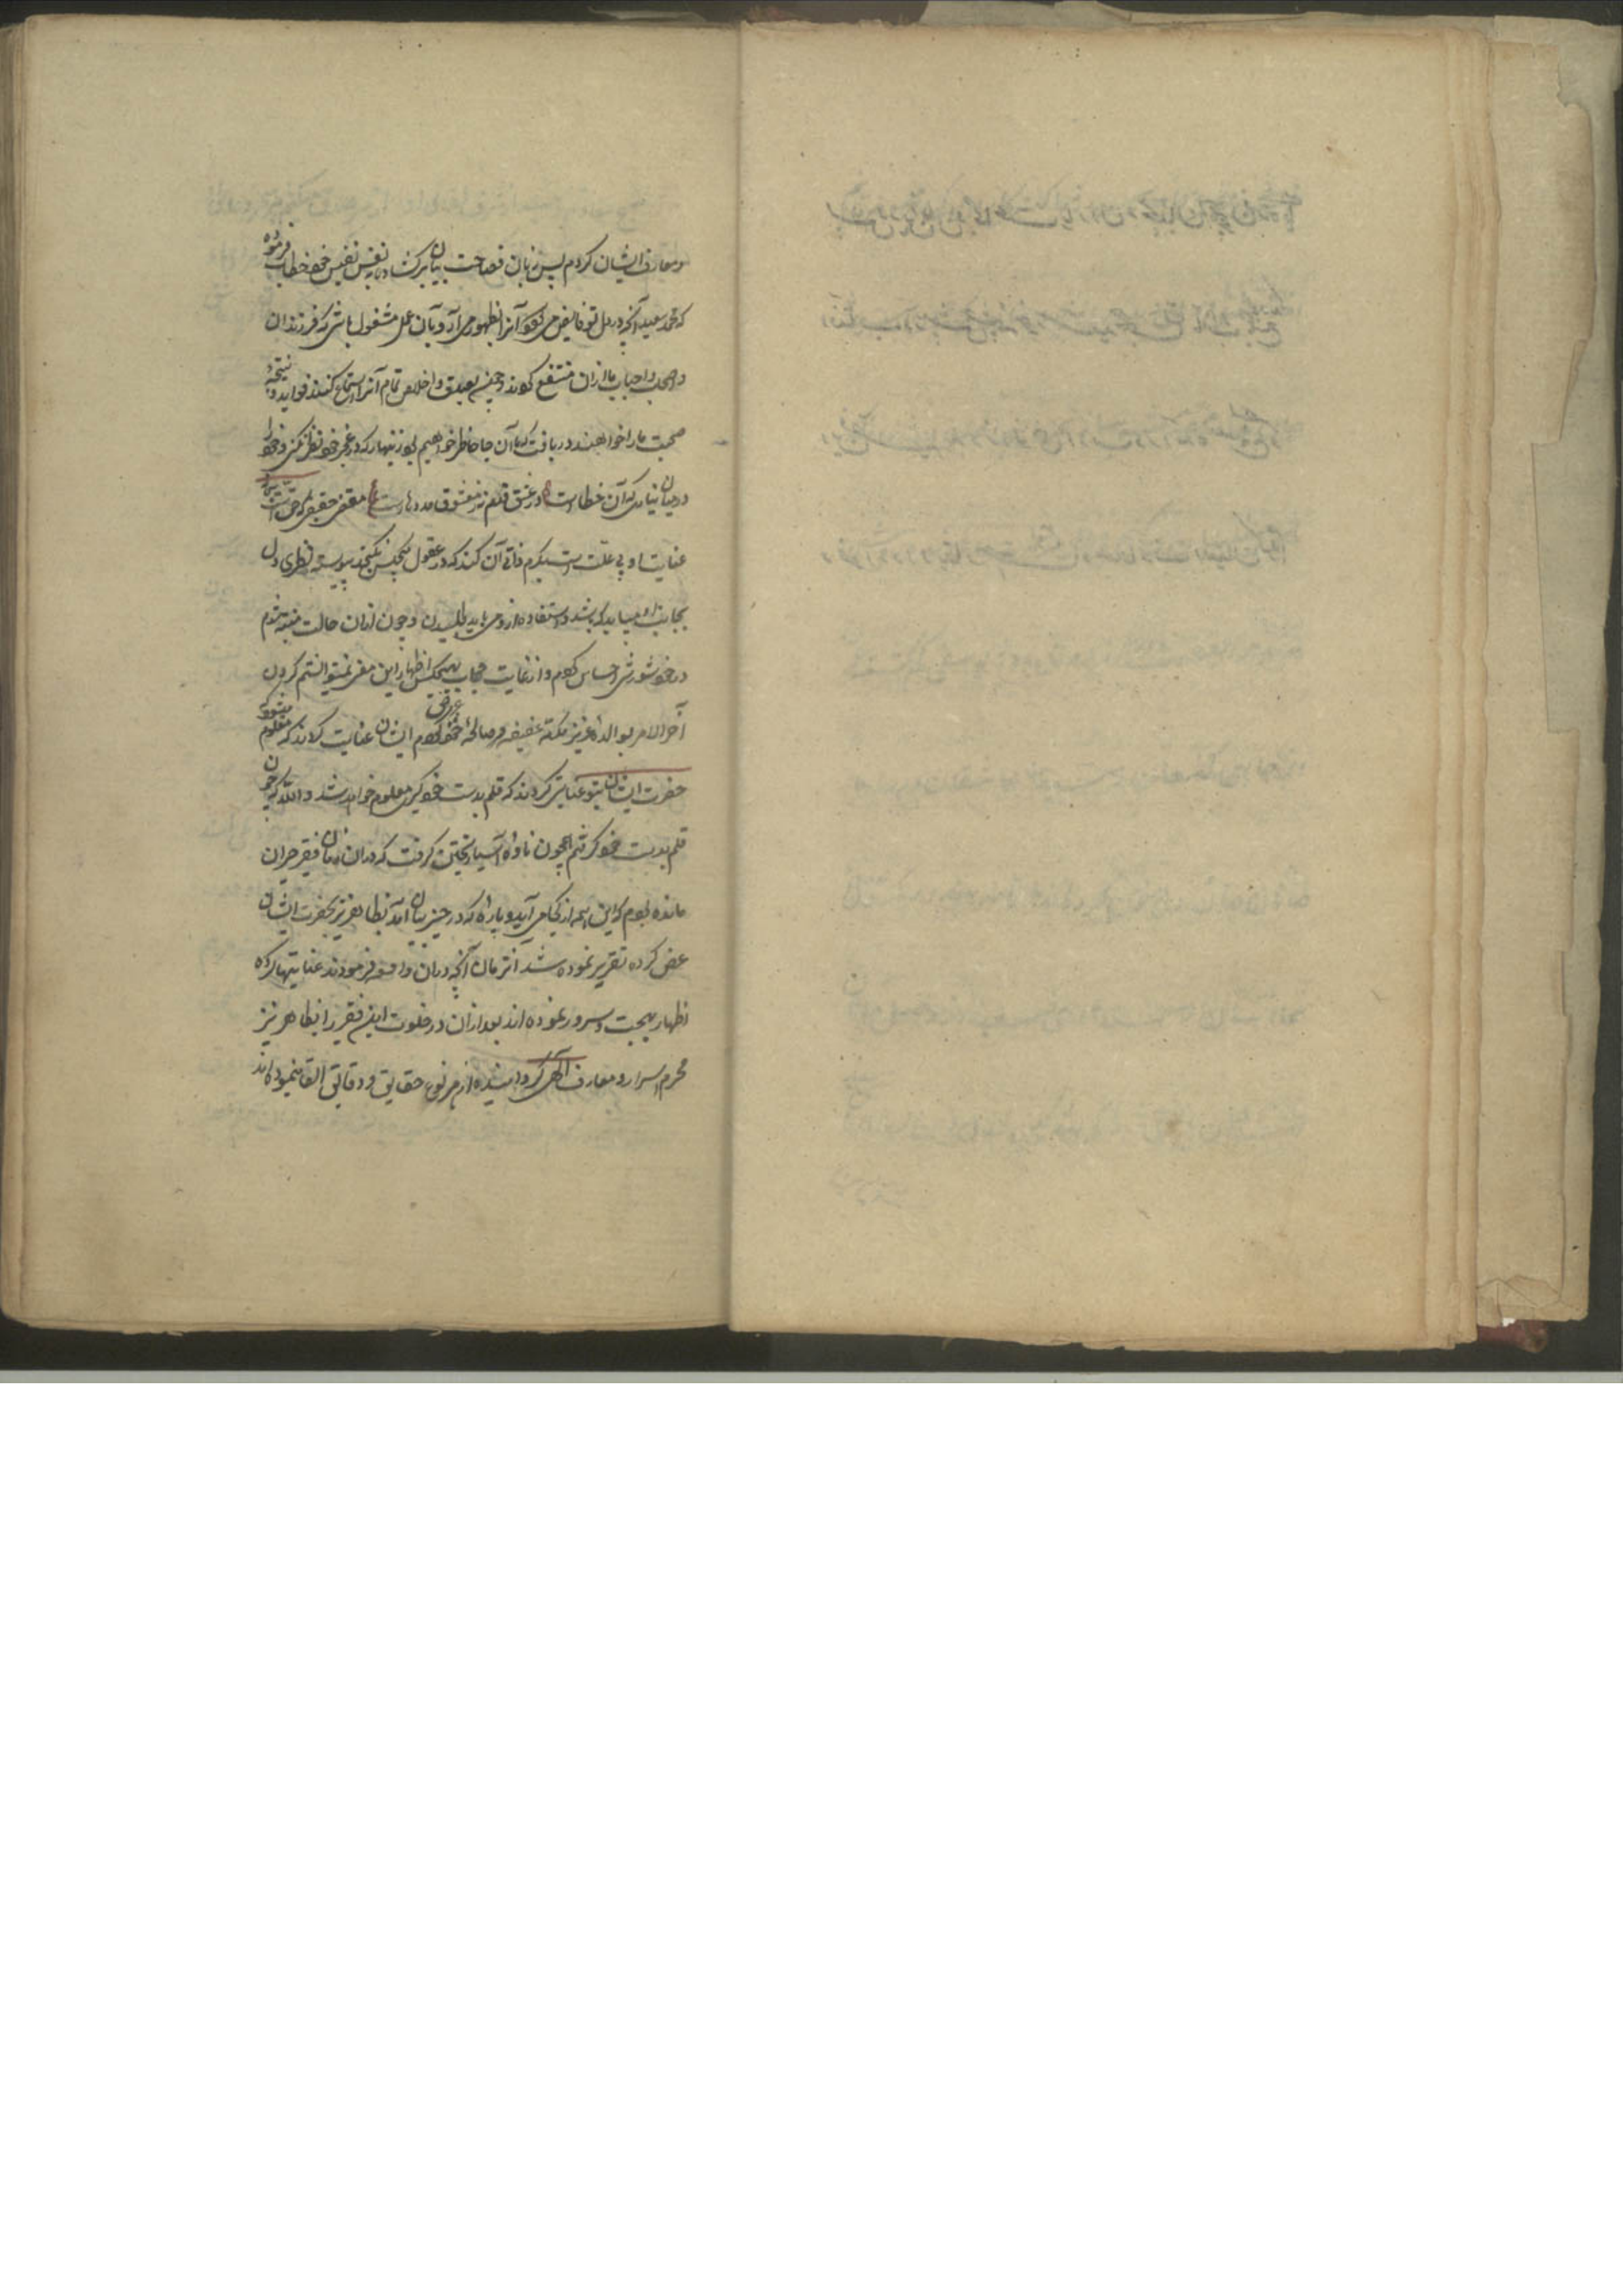 ومعارف ایشان کردم پس زبان فصاحت بیان برکشاده بنفس نفیس خود خطاب فرموده
که محمد سعید آنچه در دل تو فایض می شود آنرا بظهور می آر و بآن عمل مشغول باش که فرزندان
واصحاب واحباب ما ازان منتفع کردند و بصدق واخلاص تمام آنرا استماع کنند فواید و نتیجهٔ
صحبت ما را خواهند دریافت که ما آن جا حاضر خواهیم بود زنهار که در عجز خود نظر نکنی و خود را
در میان نیاری که آن خطاست در عشق قدم نه ز معشوق مدد هاست
عنایت او بی علت است بکرم ذاتی آن کند که در عقول هیچکس نکنجد پیوسته نظری دل
بجانب او میباید که باشد و استفاده ازو می باید طلبیدن و چون ازان حالت متنبه شدم
در خود شورشی احساس کردم و از غایت حجاب بهیچکس اظهار این معنی نمیتوانستم کردن
آخر الامر بوالدهٔ عزیز مکنه عفیفه و صالحهٔ خود عرض کردم ایشان عنایت کردند که معلوم میشود
حضرت ایشان بتو عنایتی کردند که قلم بدست خود کیری معلوم خواهد شد والله که چون
قلم بدست خود کرفتم همچون ناوهٔ آسیا ریختن کرفت که دران زمان فقیر حیران
مانده بودم که این همه از کجا می آید و پارهٔ که در حیز بیان آمد بظاهر نیز بحضرت ایشان
عرض کرده تقریر نموده شد از زمان آنچه دران واقعه فرمودند عنایتها کرده
اظهار بهجت و سرور نموده اند بعد ازان در خلوت این فقیر را بظاهر نیز
محرم اسرار و معارف الهی کردانیده از هر نوع حقایق و دقایق القا نموده اند